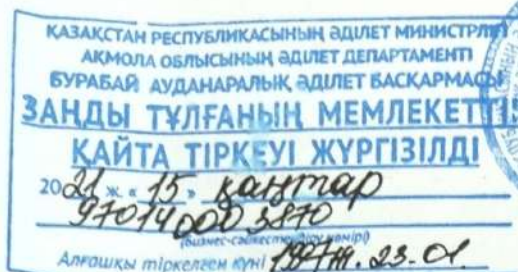 ҚАЗАҚСТАН РЕСПУБЛИКАСЫНЫҢ ӘДІЛЕТ МИНИСТРЛІГІ
АҚМОЛА ОБЛЫСЫНЫҢ ӘДІЛЕТ ДЕПАРТАМЕНТІ
БУРАБАЙ АУДАНАРАЛЫҚ ӘДІЛЕТ БАСҚАРМАСЫ
ЗАҢДЫ ТҰЛҒАНЫҢ МЕМЛЕКЕТТІК
ҚАЙТА ТІРКЕУІ ЖҮРГІЗІЛДІ
2021 ж. « 15 » қаңтар
970140003870
(бизнес-сәйкестендіру нөмірі)
Алғашқы тіркелген күні 1997ж. 23.01.